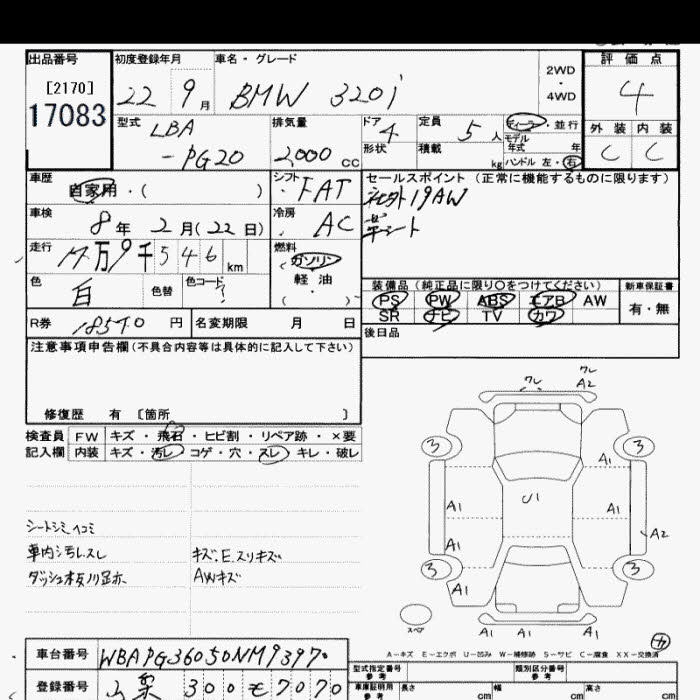 出品番号
[2170]
17083
初度登録年月
22 9月
車名・グレード
BMW 320i
2WD
・
4WD
評価点
4
外装 内装
C C
型式
LBA
-PG20
排気量
2,000 cc
ドア
4
形状
定員
5人
積載
kg
ディーラー・並行
モデル
年式 年
ハンドル 左・右
車歴
自家用・( )
シフト
FAT
車検
8年 2月(22日)
冷房
AC
走行
万9千546km
燃料
ガソリン
軽油
( )
色
白
色替
色コード
?
R券
18570円
名変期限 月 日
セールスポイント(正常に機能するものに限ります)
社外19AW
革シート
装備品(純正品に限り○をつけてください)
PS PW ABS エアB AW
SR ナビ TV カワ
新車保証書
有・無
後日品
注意事項申告欄(不具合内容等は具体的に記入して下さい)
修復歴 有 〔箇所 〕
検査員
記入欄
FW キズ・飛石・ヒビ割・リペア跡・×要
内装 キズ・汚レ・コゲ・穴・スレ・キレ・破レ
シートシミ、ヘコミ
車内シ汚レスレ
キズ、E、スリキズ
AWキズ
ワレ
ワレ
A2
3
3
A1
A1
U1
A1
A1
A2
3
3
A1
スペア
A1 A1 A1
A-キズ E-エクボ U-凹み W-補修跡 S-サビ C-腐食 XX-交換済
車台番号
WBAPG36050NM93970
登録番号
300 そ 7070
型式指定番号
参考
類別区分番号
参考
車庫証明用
参考
長さ cm
幅 cm
高さ cm